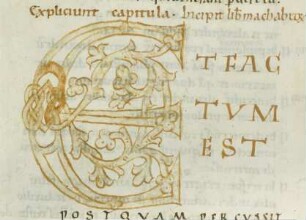 Expliciunt capitula. Incipit lib machabeor
ET FAC
TVM
EST
POSTQVAM PERCVSSIT